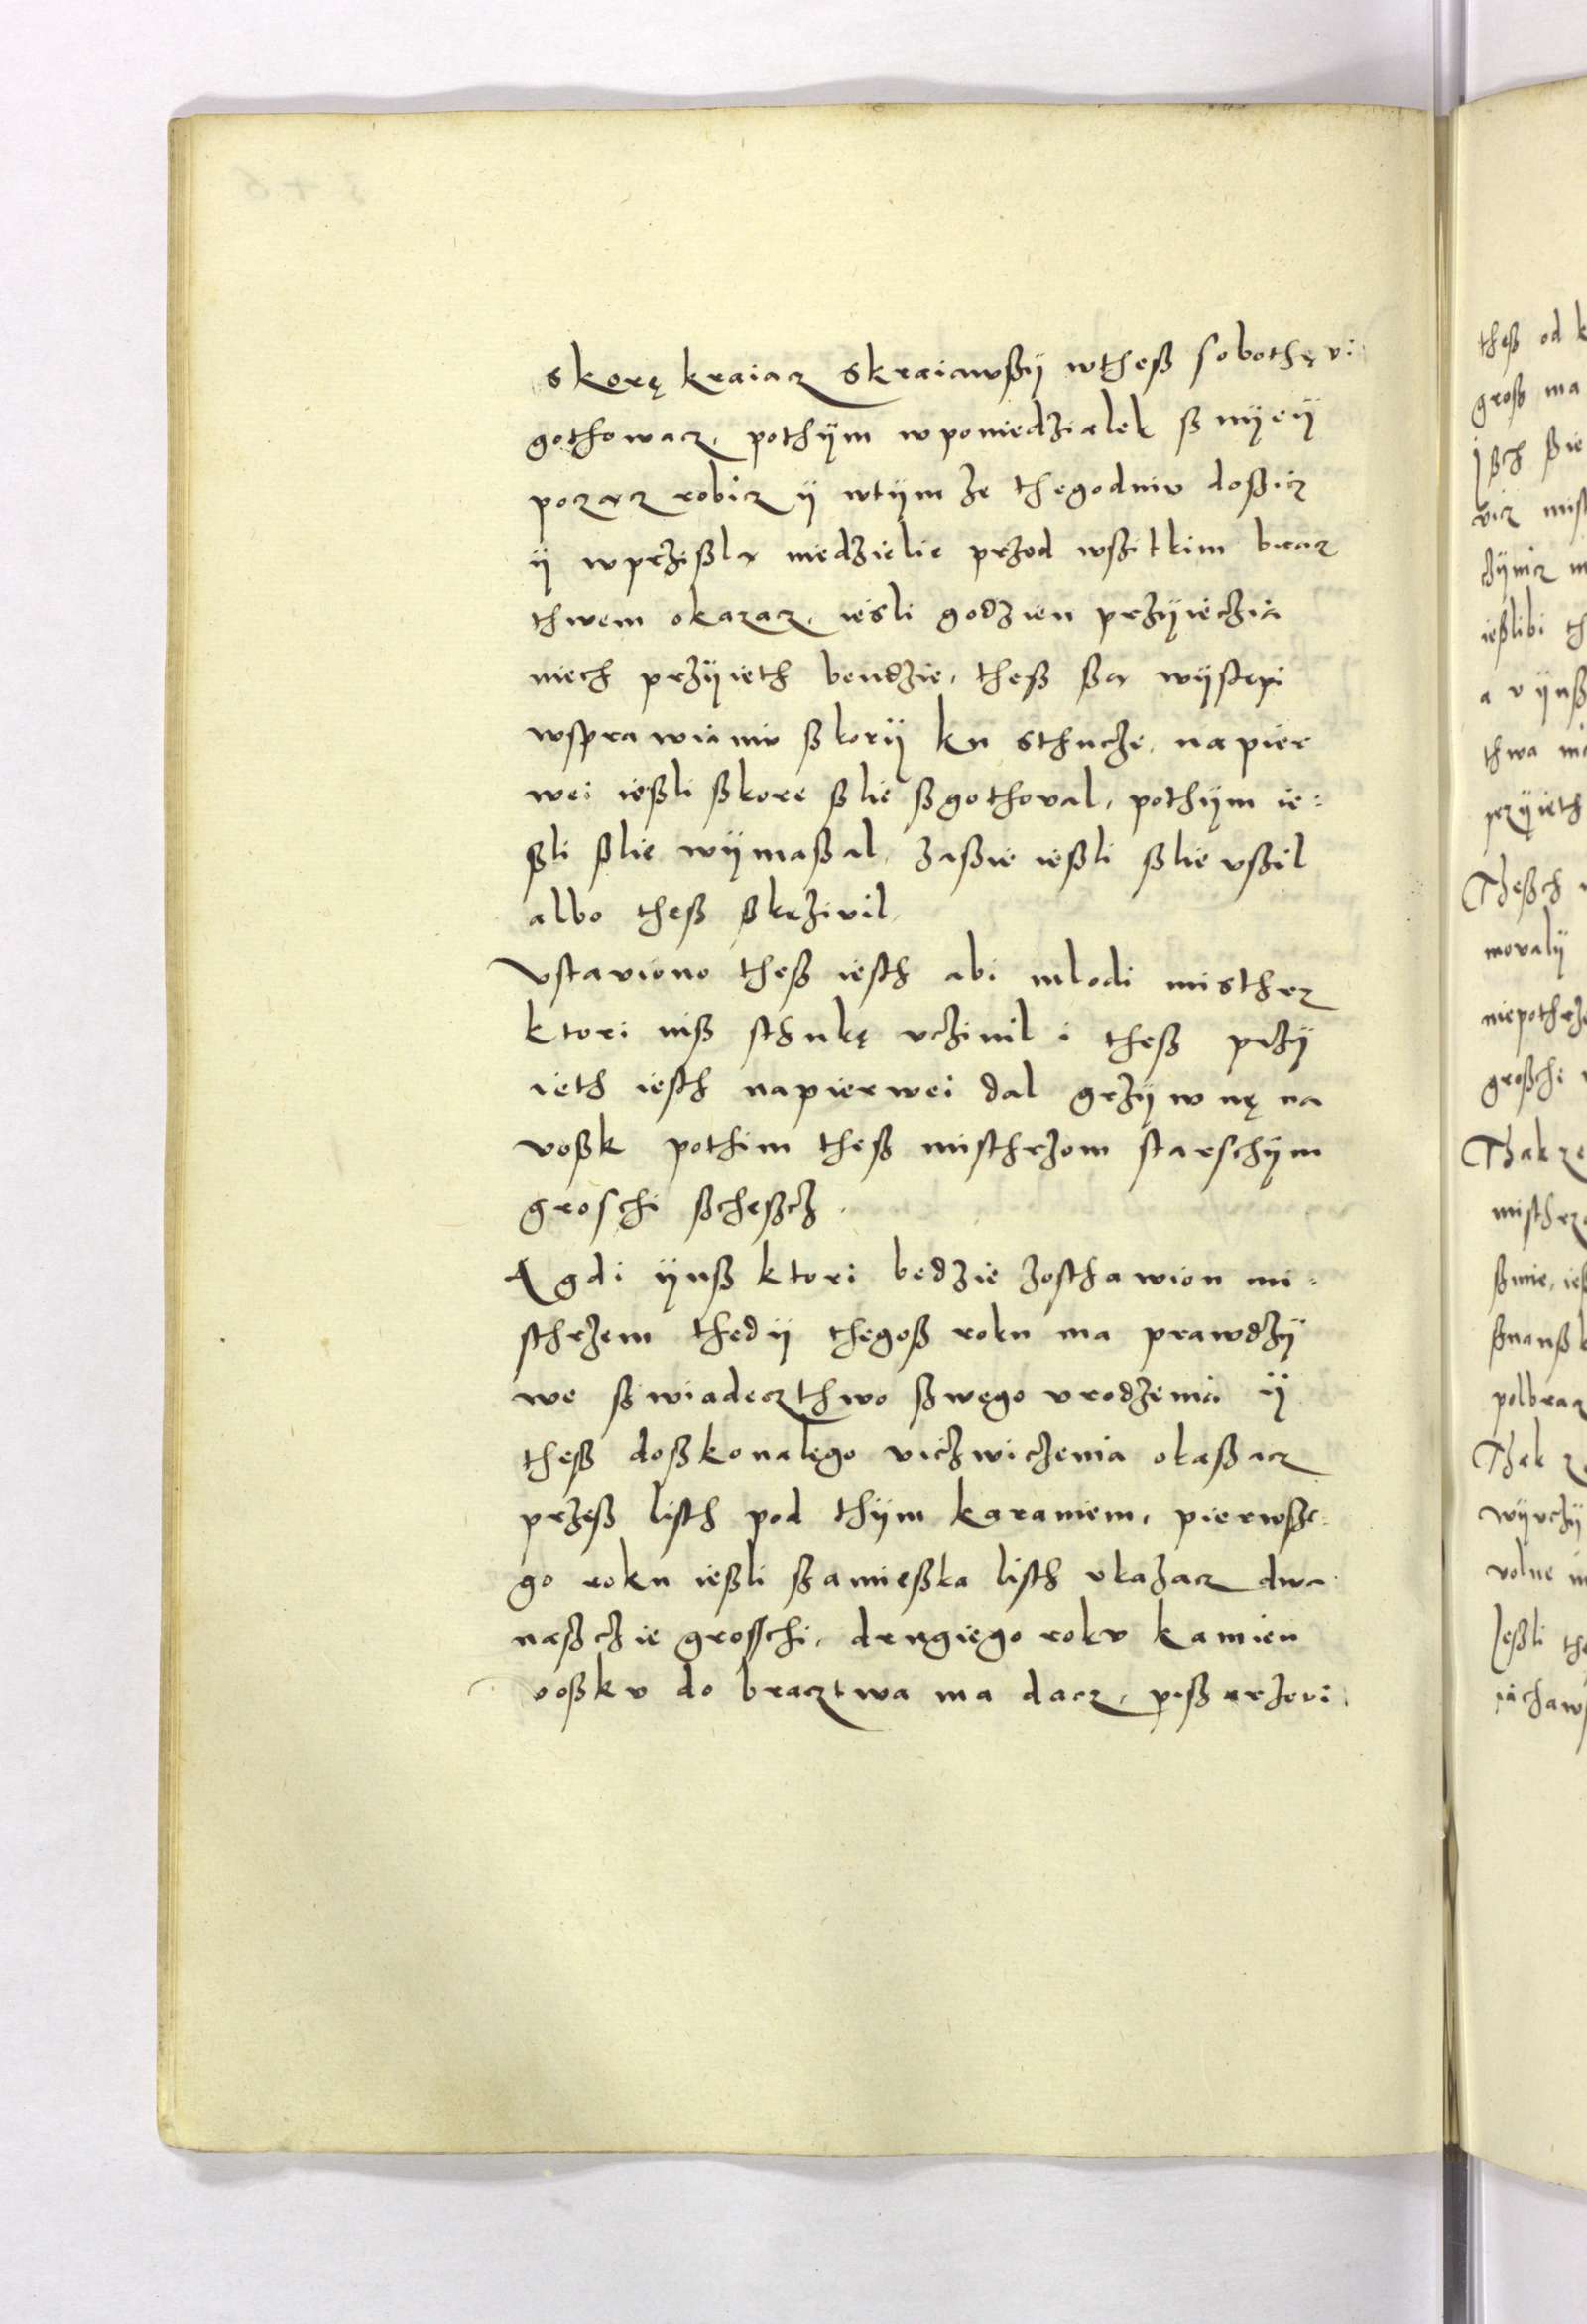 skorę kraiacz skraiawßÿ wtheß sobothę vi
gothowacz, pothÿm wponiedzialek ß nÿeÿ
poczacz robicz ÿ wtÿm ze thegodniv doßicz
ÿ wprzißla niedzielie przed wßitkim bracz
thwem okazacz, iesli godzien przÿiechia
niech przÿieth bendzie, theß ßa wÿstępi
wsprawianiv ßkorÿ kn sthucze, napier
wei ießli ßkore ßlie ßgothoval, pothÿm ie:
ßli ßlie wÿmaßal, zaßie ießli ßlie vßil
albo theß ßkrzivil
vstaviono theß iesth abi mlodi misthrz
ktori niß sthukę vczinil i theß przÿ
ieth iesth napierwei dal grzÿwnę na
voßk pothim theß misthrzom starschÿm
groschi ßcheßcz.
A gdi ÿnß ktori bedzie zosthawion mi:
sthrzem thedÿ thegoß roku ma prawdzÿ
we ßwiadecztwo ßwęgo vrodzenia ÿ
theß doßkonalęgo viczwiczenia okaßacz
przeß listh pod thÿm karaniem, pierwße:
go roku ießli ßamießka listh vkazacz dwa
naßczie grosschi, drugięgo rokv kamien
voßkv do bracztwa ma dacz, pißarzevi

theß od k
groß ma
Jßch ßie
vicz mist
czÿnicz
ießlibi th
a v ÿnß
thwa
przÿieth
Theßch
movalÿ
niepothrze
großchi
Thak ze
misthrz
ßmie, ieß
ßnanßk
polbracz
Thak
wÿvczÿ
volne
Jeßli the
iachawß